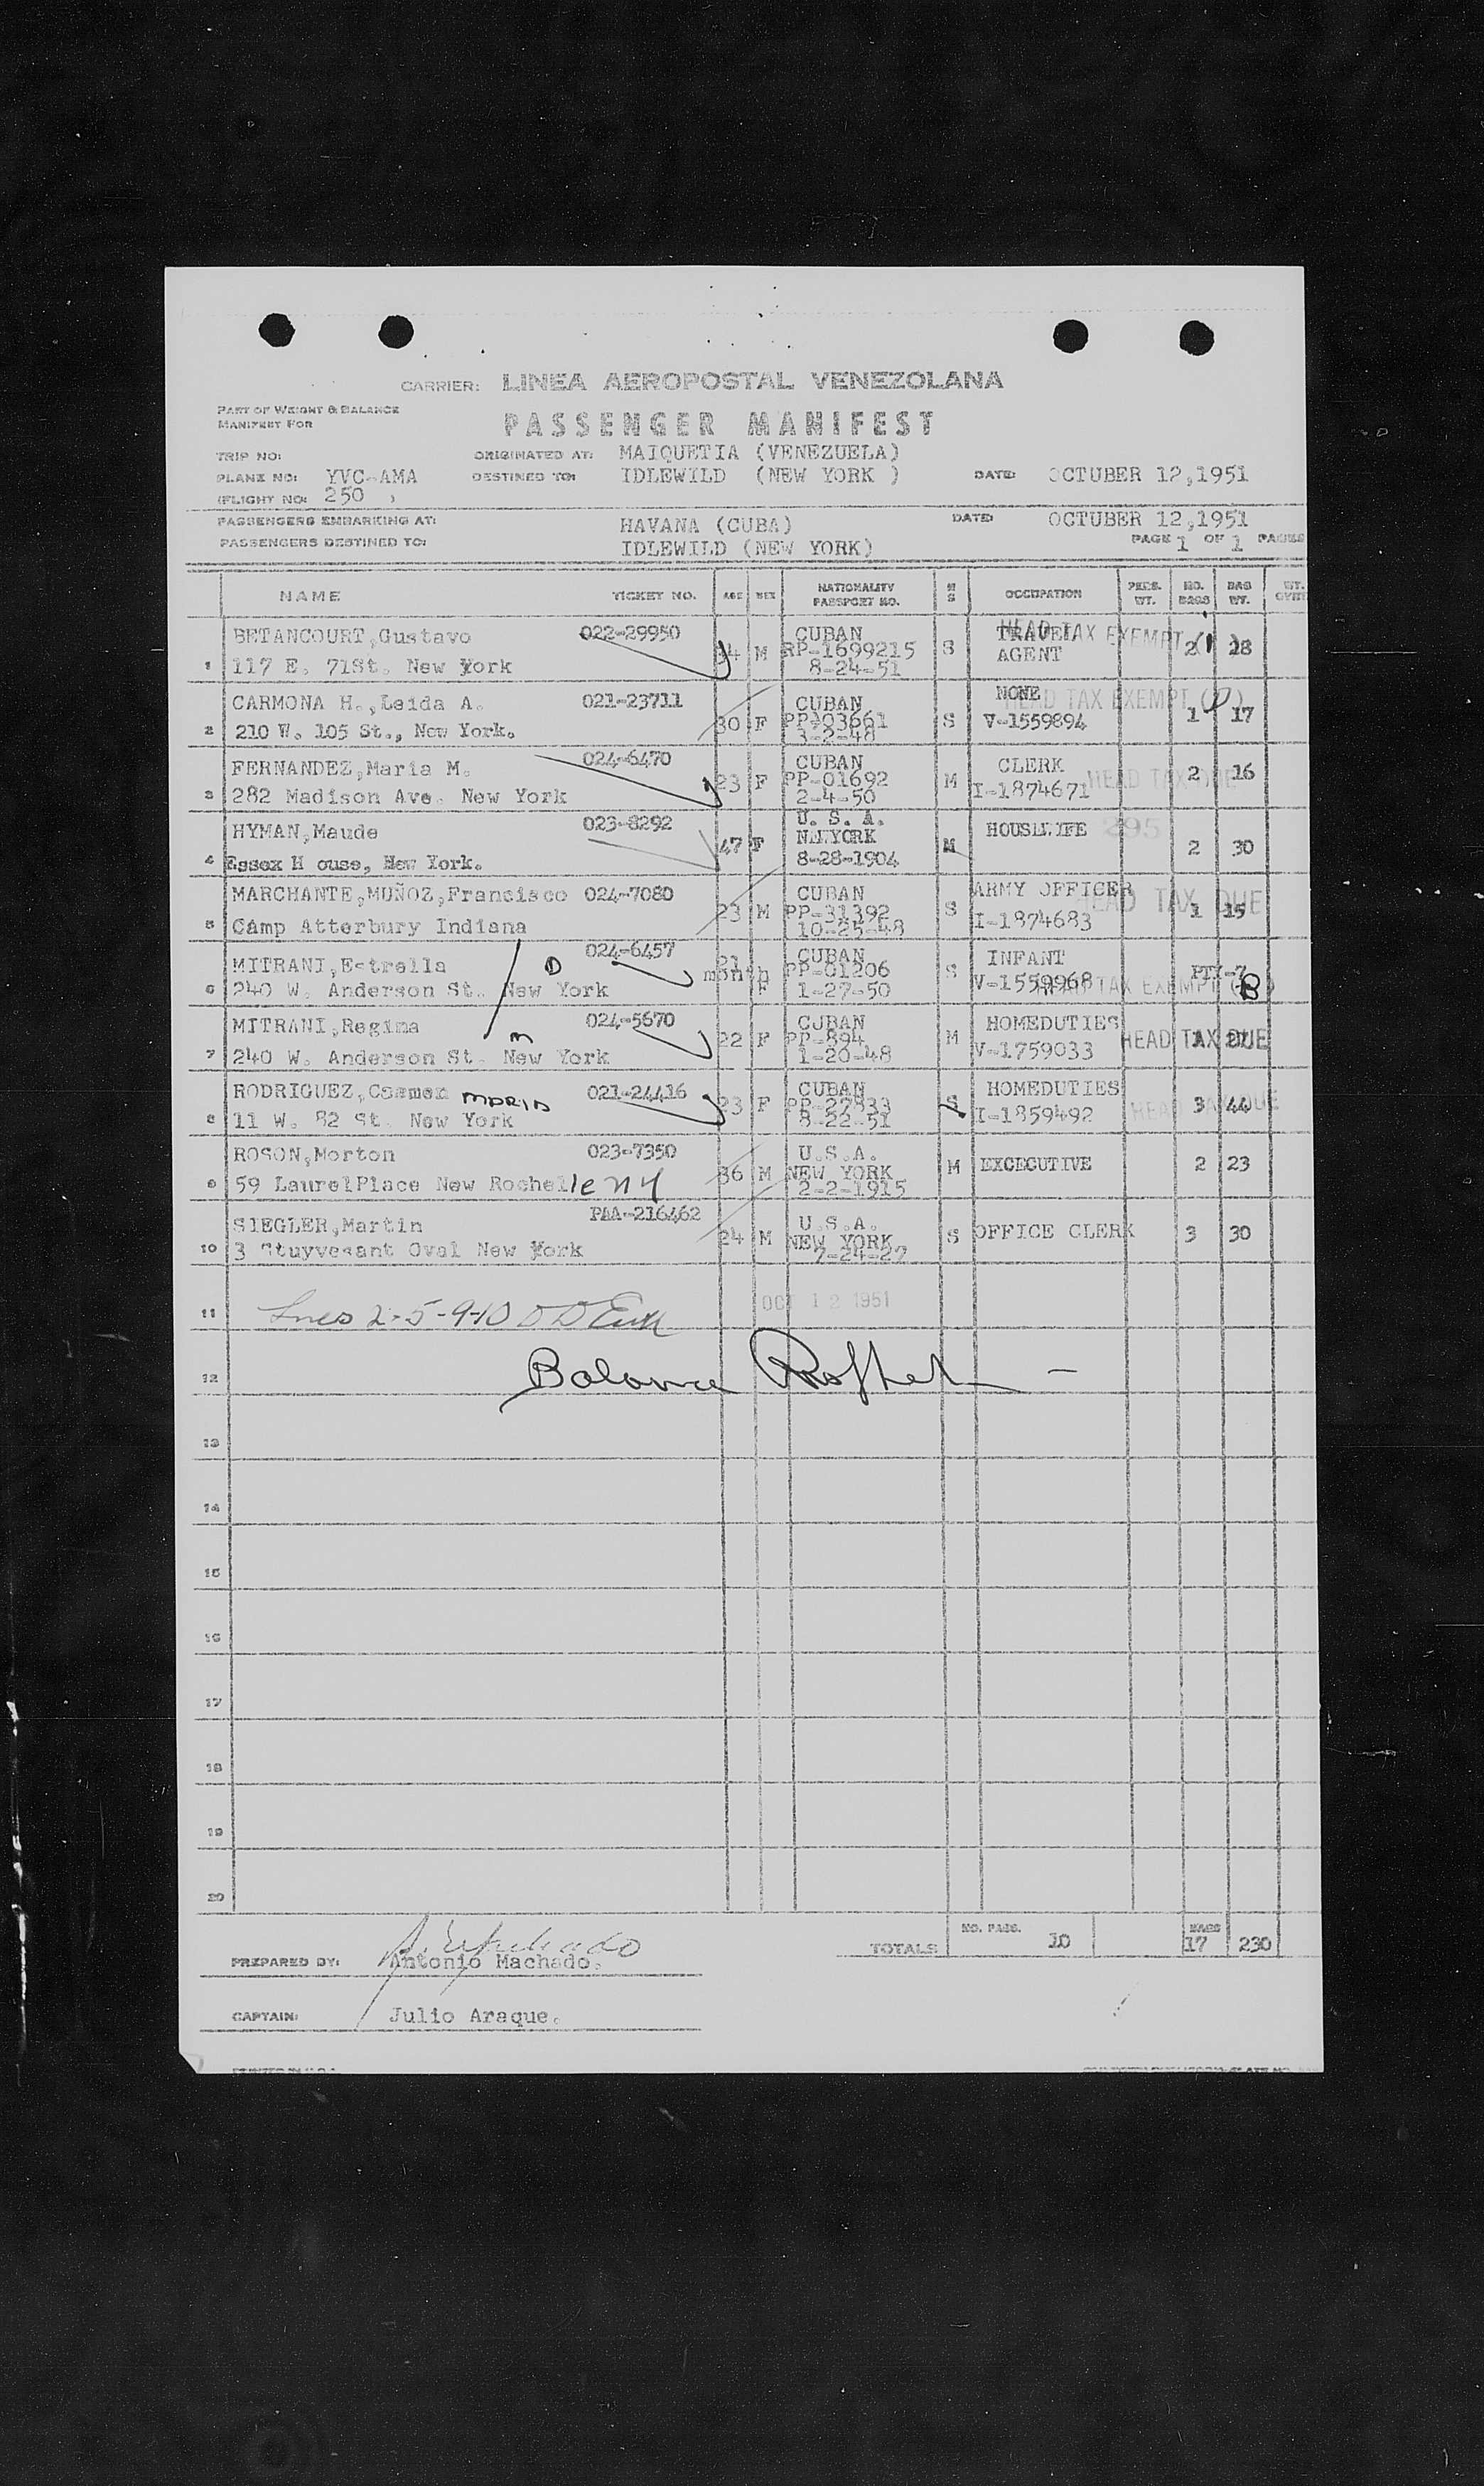 CARRIER: LINEA AEROPOSTAL VENEZOLANA
PART OF WEIGHT & BALANCE
MANIFEST FOR
PASSENGER MANIFEST
TRIP NO: ORIGINATED AT: MAIQUETIA (VENEZUELA)
PLANE NO: YVC-AMA DESTINED TO: IDLEWILD (NEW YORK ) DATE: OCTUBER 12,1951
(FLIGHT NO: 250 )
PASSENGERS EMBARKING AT: HAVANA (CUBA) DATE: OCTUBER 12,1951
PASSENGERS DESTINED TO: IDLEWILD (NEW YORK) PAGE 1 OF 1 PAGES
NAME TICKET NO. AGE SEX NATIONALITY PASSPORT NO. M S OCCUPATION PERS. WT. NO. BAGS BAG WT. WT.
BETANCOURT,Gustavo 022-29950 CUBAN TRAVEL HEAD TAX EXEMPT (1)
1 117 E. 71St. New York 34 M RP-1699215 S AGENT 2 28
8-24-51
CARMONA H.,Leida A. 021-23711 CUBAN NONE HEAD TAX EXEMPT ( )
2 210 W. 105 St., New York. 30 F PP-03661 S V-1559894 1 17
3-2-48
FERNANDEZ,Maria M. 024-6470 CUBAN CLERK HEAD TAX DUE
3 282 Madison Ave. New York 23 F PP-01692 M I-1874671 2 16
2-4-50
HYMAN,Maude 023-8292 U. S. A. HOUSEWIFE 295
4 Essex H ouse, New York. 47 F NEWYORK M 2 30
8-28-1904
MARCHANTE,MUÑOZ,Francisco 024-7080 CUBAN ARMY OFFICER HEAD TAX DUE
5 Camp Atterbury Indiana 23 M PP-31392 S I-1874683 1 15
10-25-48
MITRANI,Estrella 024-6457 21 CUBAN INFANT
6 240 W. Anderson St. New York month F PP-01206 S V-1559968 HEAD TAX EXEMPT
1-27-50
MITRANI,Regina 024-5670 CUBAN HOMEDUTIES
7 240 W. Anderson St. New York 22 F PP-894 M V-1759033 HEAD TAX DUE
1-20-48
RODRIGUEZ,Carmen MARIA 021-24416 CUBAN HOMEDUTIES
8 11 W. 82 St. New York 23 F PP-27833 S I-1859492 HEAD TAX DUE 3 44
8-22-51
ROSON,Morton 023-7350 U.S.A.
9 59 LaurelPlace New Rochelle NY 36 M NEW YORK M EXCECUTIVE 2 23
2-2-1915
SIEGLER,Martin PAA-216462 U.S.A.
10 3 Stuyvesant Oval New York 24 M NEW YORK S OFFICE CLERK 3 30
7-24-27
11 Lines 2-5-9-10 OCT 12 1951
12 Balance
13
14
15
16
17
18
19
20
TOTALS: NO. PASS. 10 BAGS 17 230
PREPARED BY: Antonio Machado.
CAPTAIN: Julio Araque.